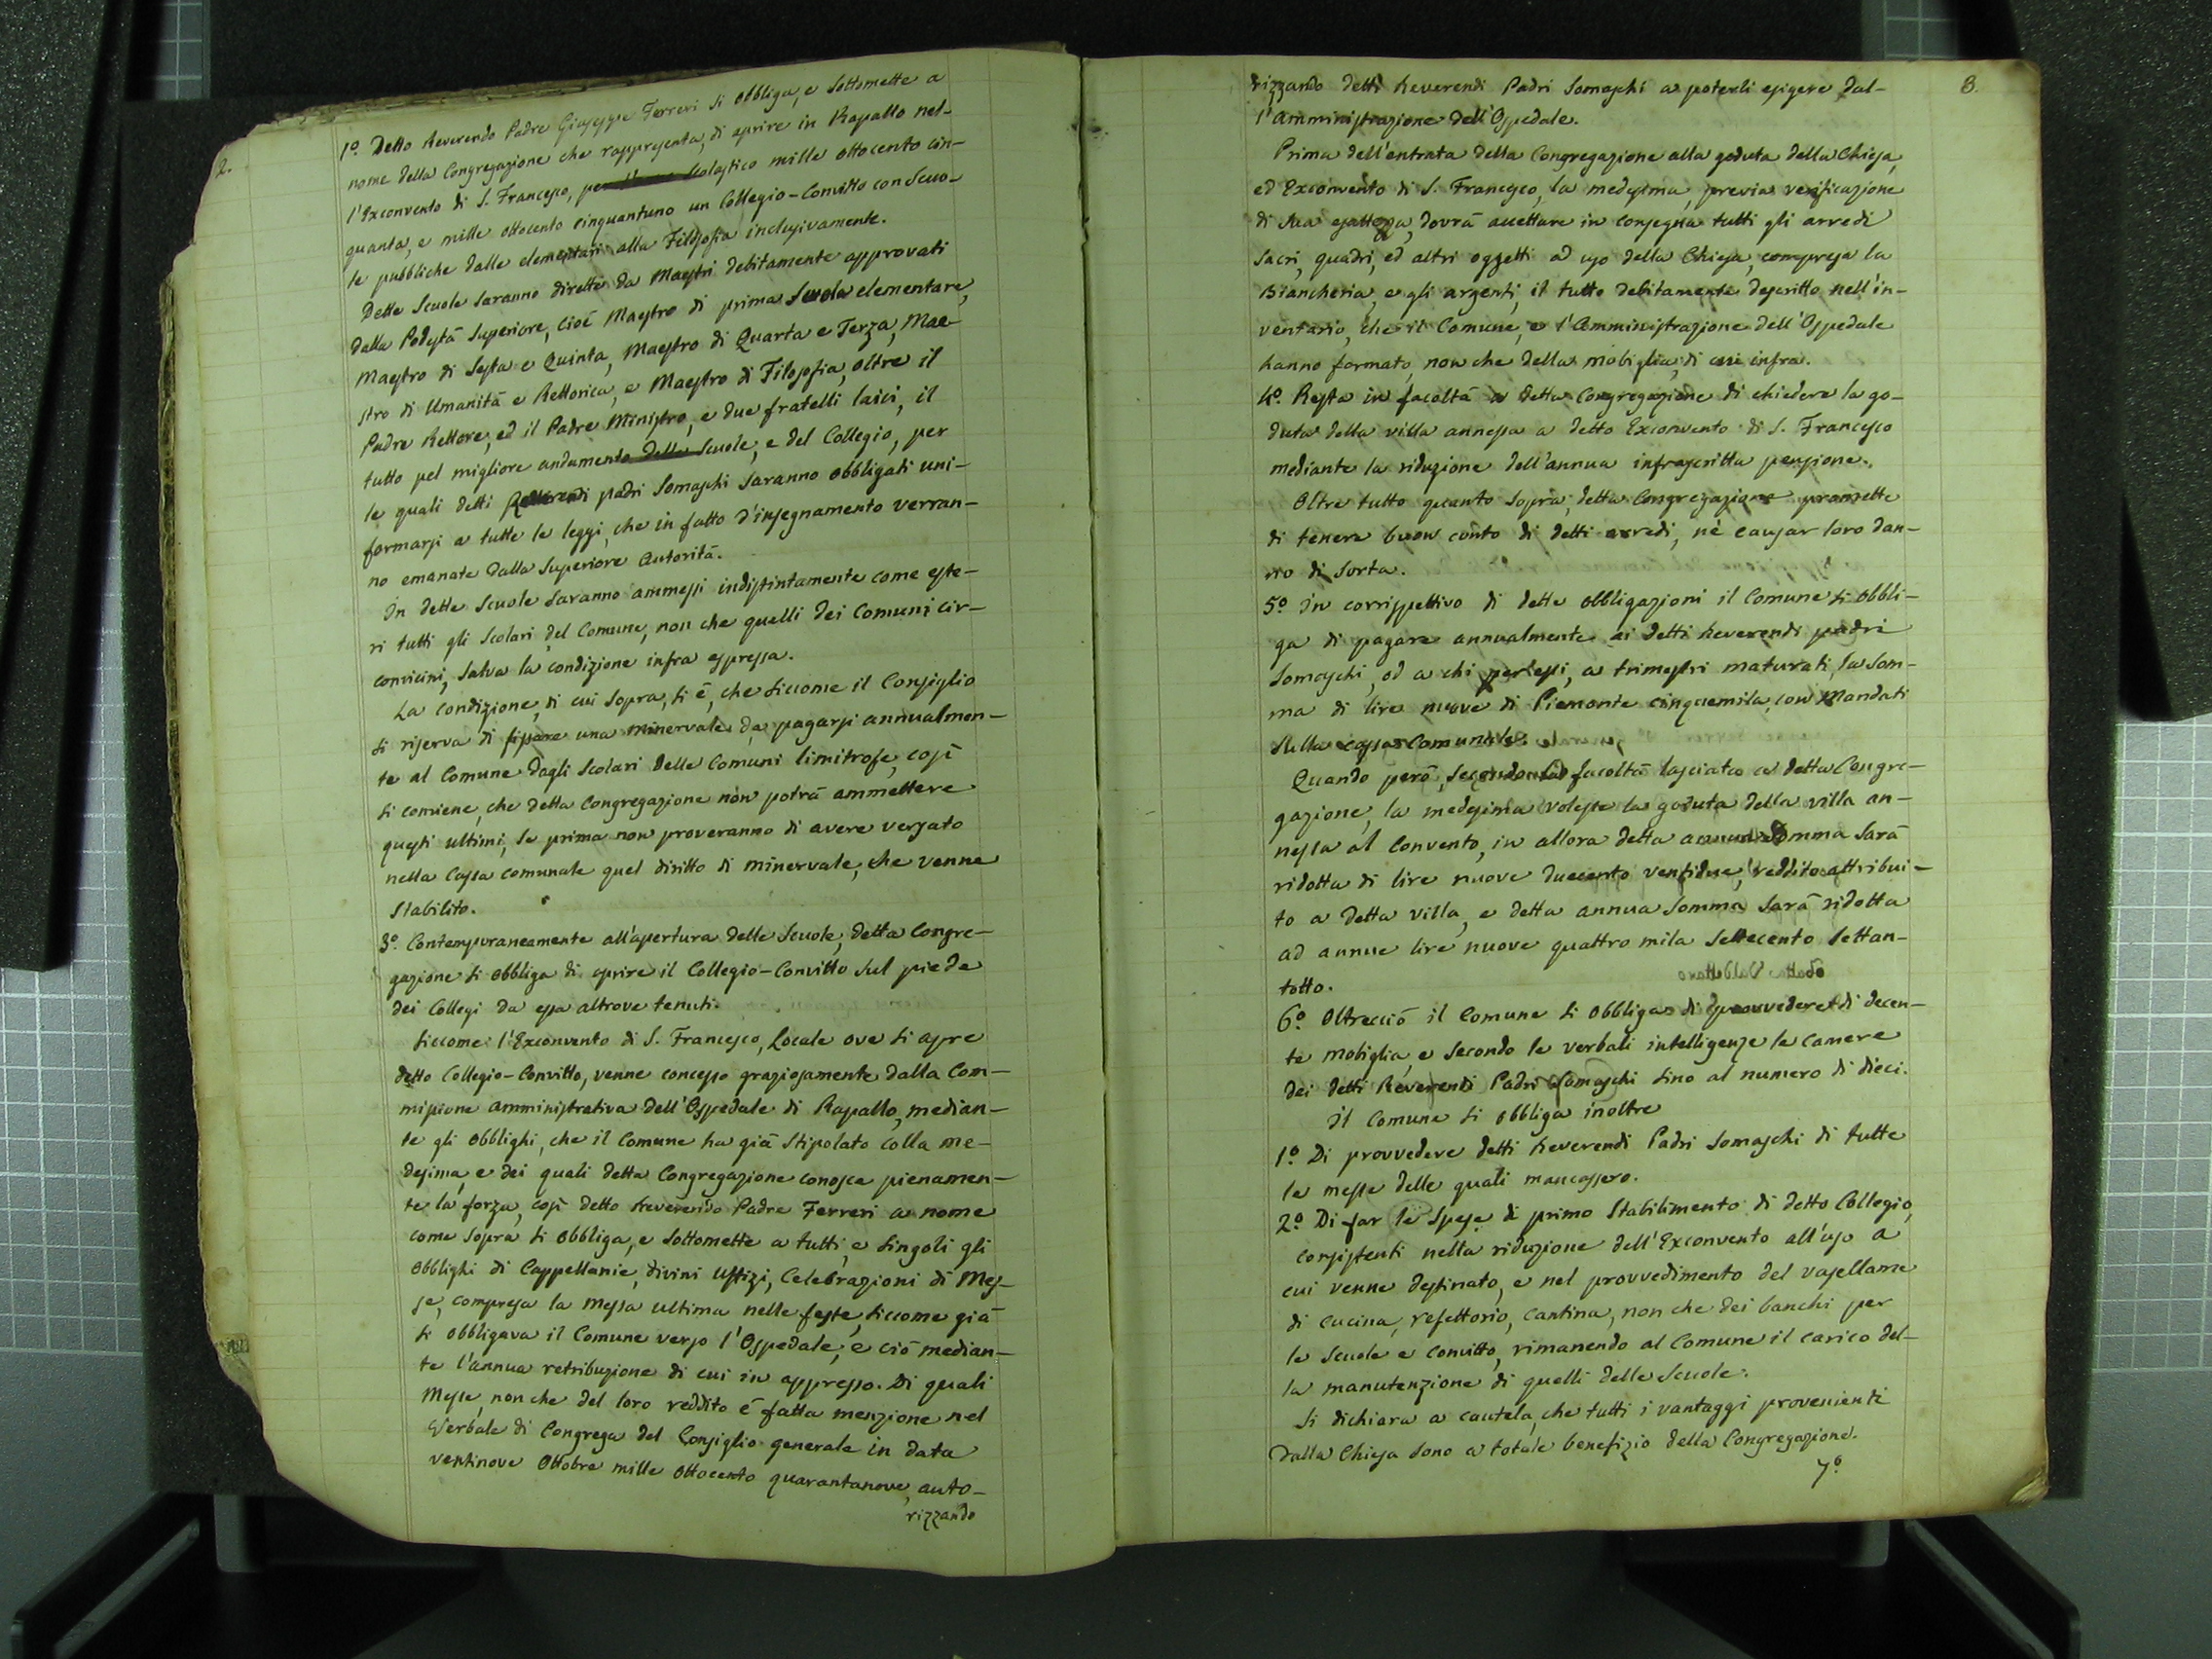 2.
1º. Detto Reverendo Padre Giuseppe Ferreri si obbliga, e sottomette a
nome della Congregazione che rappresenta, di aprire in Rapallo nel-
l'Exconvento di S. Francesco, per scolastico mille ottocento cin-
quanta, e mille ottocento cinquantuno un Collegio-Convitto con Scuo-
le pubbliche dalle elementari alla Filosofia inclusivamente.
Dette Scuole saranno dirette da Maestri debitamente approvati
dalla Podestà Superiore, cioè Maestro di prima Scuola elementare,
Maestro di Sesta e Quinta, Maestro di Quarta e Terza, Mae-
stro di Umanità e Rettorica, e Maestro di Filosofia, oltre il
Padre Rettore, ed il Padre Ministro, e due fratelli laici, il
tutto pel migliore andamento delle Scuole, e del Collegio, per
le quali detti Reverendi padri Somaschi saranno obbligati uni-
formarsi a tutte le leggi, che in fatto d'insegnamento verran-
no emanate dalla Superiore autorità.
In dette Scuole saranno ammessi indistintamente come este-
ri tutti gli Scolari del Comune, non che quelli dei Comuni cir-
convicini, salva la condizione infra espressa.
La condizione, di cui sopra, si è, che siccome il Consiglio
si riserva di fissare una minervale da pagarsi annualmen-
te al Comune dagli Scolari delle Comuni limitrofe, così
si conviene, che detta Congregazione non potrà ammettere
questi ultimi, se prima non proveranno di avere versato
nella Cassa comunale quel diritto di minervale, che venne
stabilito.
3º. Contemporaneamente all'apertura delle Scuole, detta Congre-
gazione si obbliga di aprire il Collegio-Convitto sul piede
dei Collegi da essa altrove tenuti.
Siccome l'Exconvento di S. Francesco, Locale ove si apre
detto Collegio-Convitto, venne concesso graziosamente dalla Com-
missione amministrativa dell'Ospedale di Rapallo, median-
te gli obblighi, che il Comune ha già stipolato colla me-
desima, e dei quali detta Congregazione conosce pienamen-
te la forza, così detto Reverendo Padre Ferreri a nome
come sopra si obbliga, e sottomette a tutti, e singoli gli
obblighi di Cappellanie, divini Uffizi, Celebrazioni di Mes-
se, compresa la Messa ultima nelle feste, siccome già
si obbligava il Comune verso l'Ospedale, e ciò median-
te l'annua retribuzione di cui in appresso. Di quali
Messe, non che del loro reddito è fatta menzione nel
Verbale di Congrega del Consiglio generale in data
ventinove Ottobre mille ottocento quarantanove, auto-
rizzando
3.
rizzando detti Reverendi Padri Somaschi a poterli esigere dal-
l'amministrazione dell'Ospedale.
Prima dell'entrata della Congregazione alla goduta della Chiesa,
ed Exconvento di S. Francesco, la medesima, previa verificazione
di sua esattezza, dovrà accettare in consegna tutti gli arredi
sacri, quadri, ed altri oggetti ad uso della Chiesa, compresa la
Biancheria, e gli argenti, il tutto debitamente descritto nell'in-
ventario, che il Comune, e l'Amministrazione dell'Ospedale
hanno formato, non che della mobiglia, di cui infra.
4º. Resta in facoltà a detta Congregazione di chiedere la go-
duta della villa annessa a detto Exconvento di S. Francesco
mediante la riduzione dell'annua infrascritta pensione.
Oltre tutto quanto sopra, detta Congregazione promette
di tenere buon conto di detti arredi, nè causar loro dan-
no di sorta.
5º In corrispettivo di dette obbligazioni il Comune si obbli-
ga di pagare annualmente ai detti Reverendi padri
Somaschi, od a chi per essi, a trimestri maturati, la som-
ma di lire nuove di Piemonte cinquemila, con Mandati
sulla cassa Comunale.
Quando però, secondo la facoltà lasciata a detta Congre-
gazione, la medesima volesse la goduta della villa an-
nessa al Convento, in allora detta annua somma sarà
ridotta di lire nuove duecento ventidue, reddito attribui-
to a detta villa, e detta annua somma sarà ridotta
ad annue lire nuove quattro mila settecento settan-
totto.
6º. Oltrecciò il Comune si obbliga di provvedere di decen-
te mobiglia, e secondo le verbali intelligenze le camere
dei detti Reverendi Padri Somaschi sino al numero di dieci.
Il Comune si obbliga inoltre
1º. Di provvedere detti Reverendi Padri Somaschi di tutte
le messe delle quali mancassero.
2º. Di far le spese di primo Stabilimento di detto Collegio,
consistenti nella riduzione dell'Exconvento all'uso a
cui venne destinato, e nel provvedimento del vasellame
di cucina, refettorio, cantina, non che dei banchi per
le Scuole e Convitto, rimanendo al Comune il carico del-
la manutenzione di quelli delle Scuole.
Si dichiara a cautela, che tutti i vantaggi provenienti
dalla Chiesa sono a totale benefizio della Congregazione.
7º